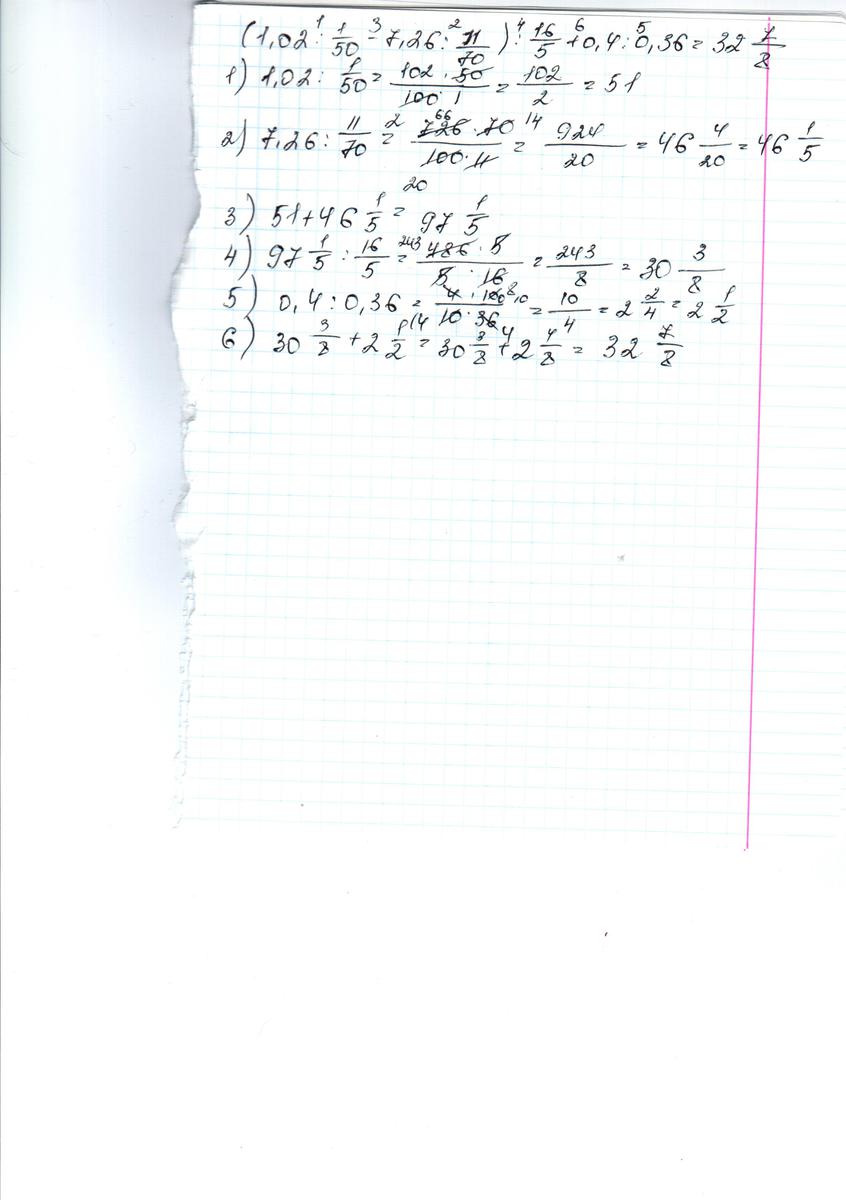 (1,02 : 1/50 - 7,26 : 11/70) : 16/5 + 0,4 : 0,36 = 32 7/8
1) 1,02 : 1/50 = 102 · 50 / 100 · 1 = 102/2 = 51
2) 7,26 : 11/70 = 726 · 70 / 100 · 11 = 924/20 = 46 4/20 = 46 1/5
3) 51 + 46 1/5 = 97 1/5
4) 97 1/5 : 16/5 = 486 · 5 / 5 · 16 = 243/8 = 30 3/8
5) 0,4 : 0,36 = 4 · 100 / 10 · 36 = 10/4 = 2 2/4 = 2 1/2
6) 30 3/8 + 2 1/2 = 30 3/8 + 2 4/8 = 32 7/8